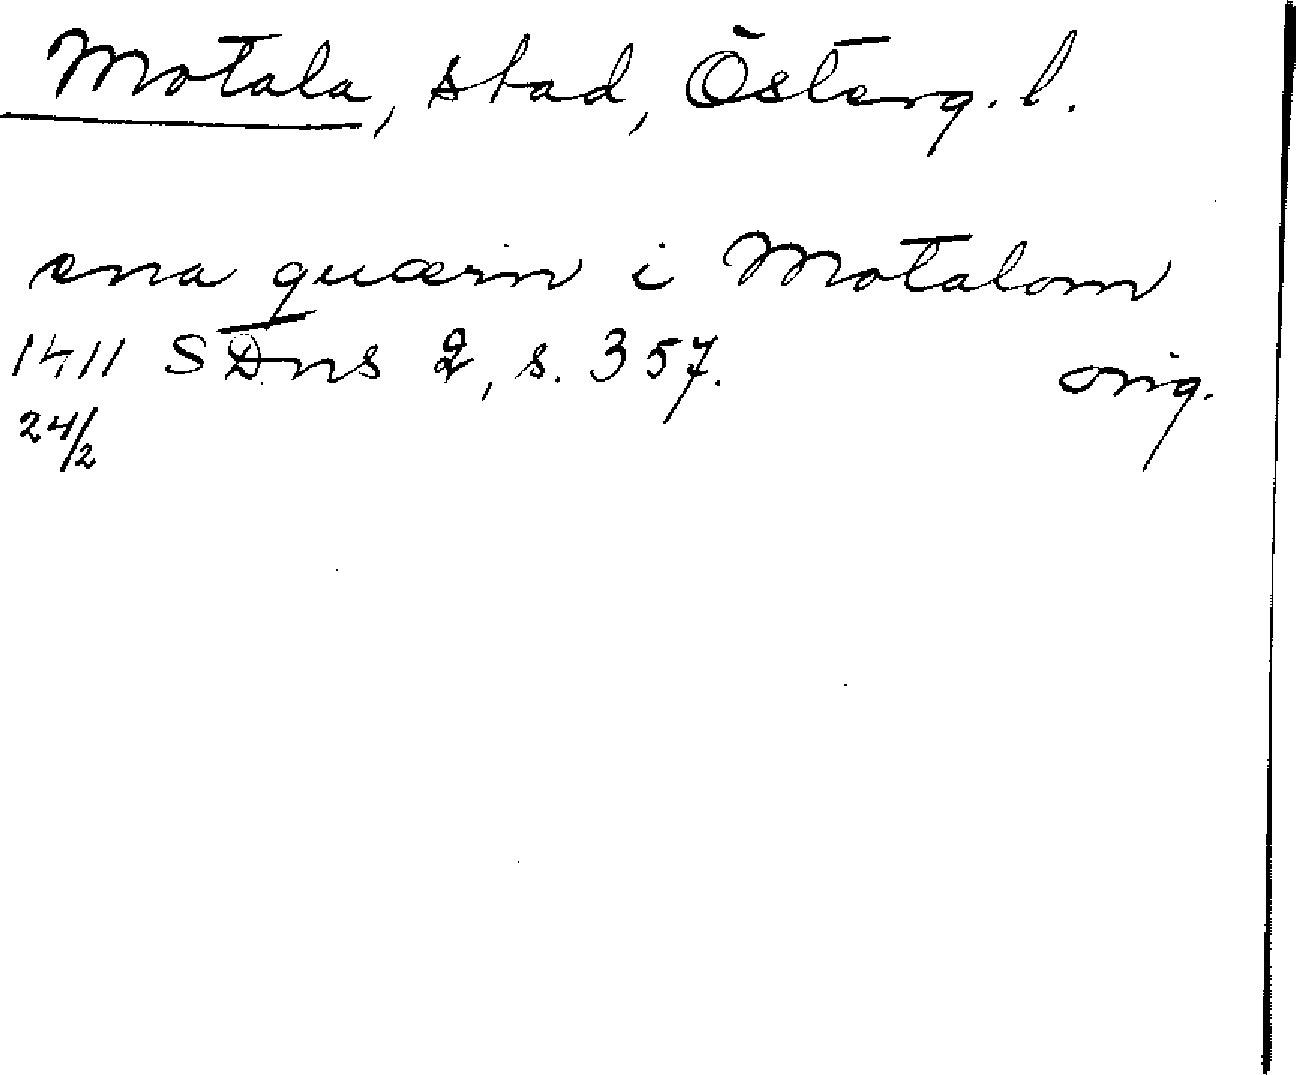 Motala, stad, Österg. l.
ena quærn i Motalom
1411 SDns 2, s. 357. orig.
24/2